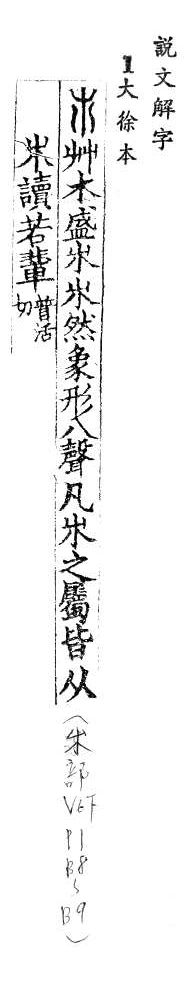 説文解字
1大徐本
𣎵艸木盛𣎵𣎵然象形八聲凡𣎵之屬皆从
𣎵讀若輩普活
切
(𣎵部V6下P11B8~B9)